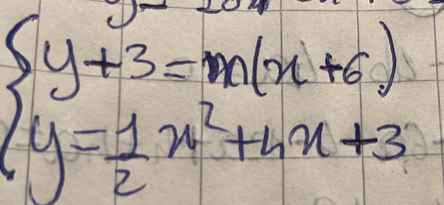 y+3=m(x+6)
y=1/2 x²+4x+3